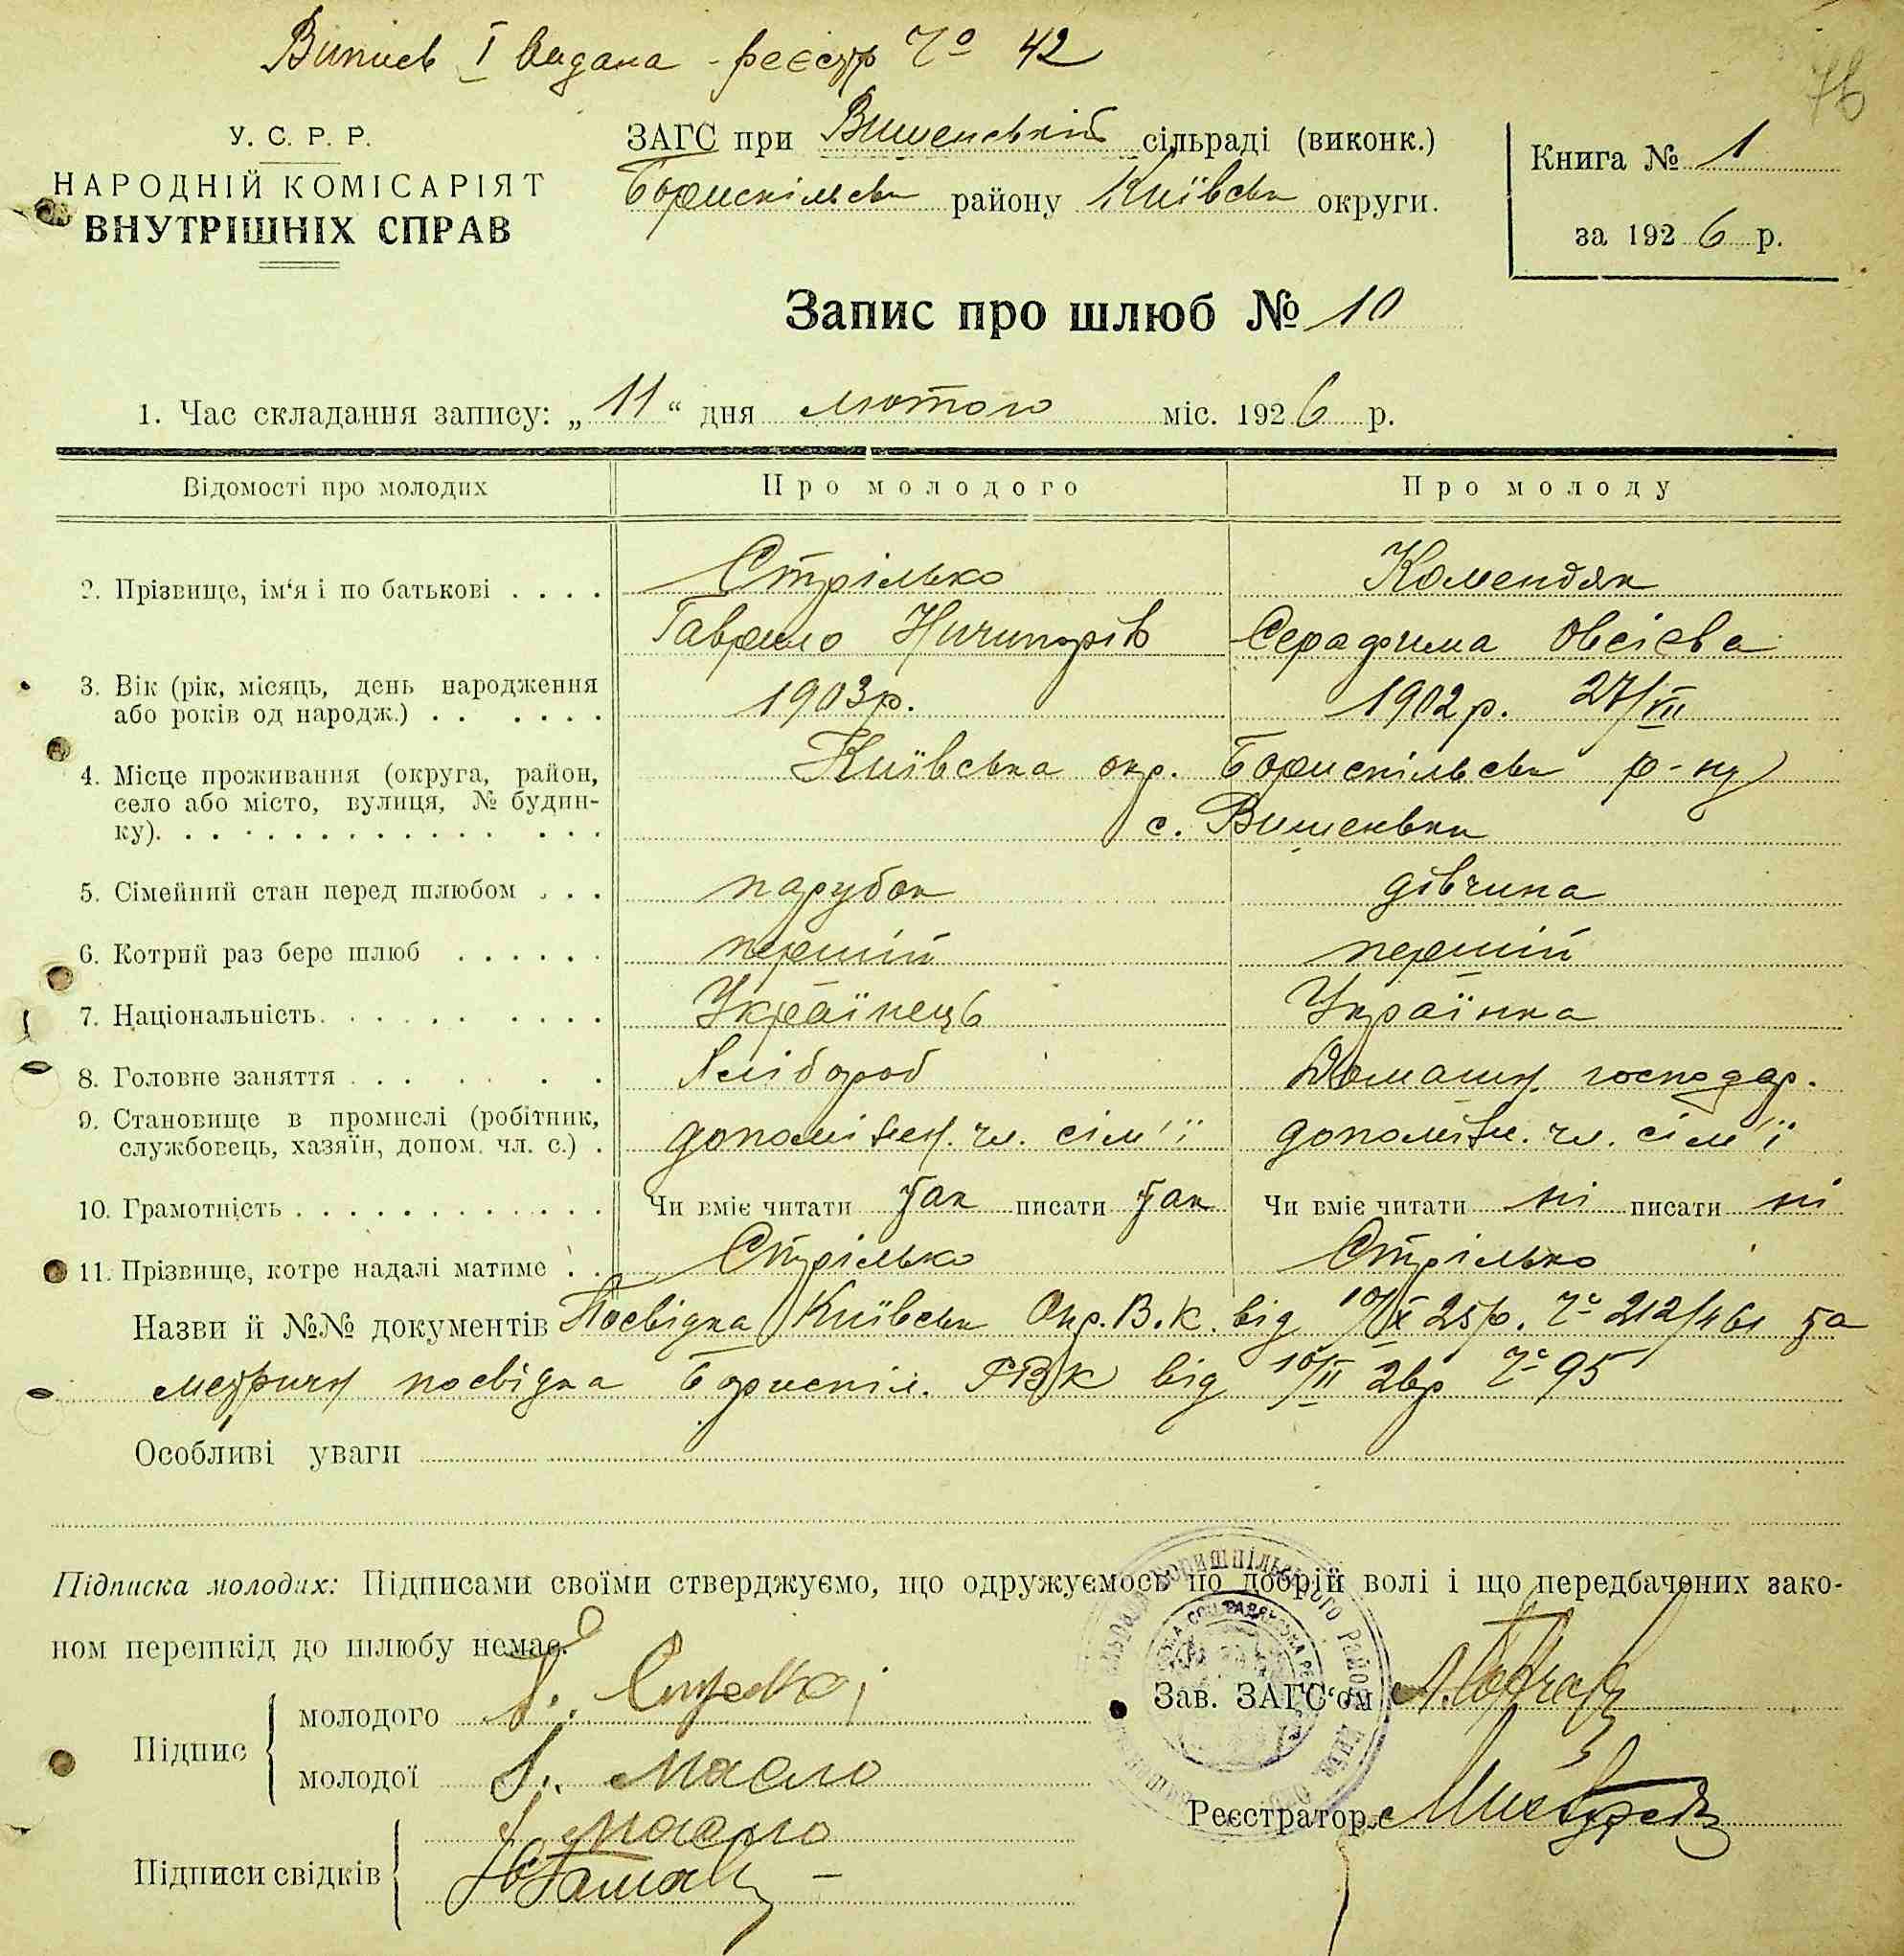 Виписв І видана - реєстр Ч° 42
76
У. С. Р. Р.
НАРОДНІЙ КОМІСАРІЯТ
ВНУТРІШНІХ СПРАВ
ЗАГС при Вишенській сільраді (виконк.)
Бориспільськ району Київськ округи.
Книга № 1
за 1926 р.
Запис про шлюб № 10
1. Час складання запису: „11“ дня лютого міс. 1926 р.
Відомості про молодих Про молодого Про молоду
2. Прізвище, ім'я і по батькові . . . . Стрілько Комендяк
Гаврило Ничипорів Серафима Овсієва
3. Вік (рік, місяць, день народження
або років од народж.) . . . . . . 1903р. 1902р. 27/VII
4. Місце проживання (округа, район, Київська окр. Бориспільськ р-ну
село або місто, вулиця, № будин-
ку). . . . . . . . . . . . . . . с. Вишеньки
5. Сімейний стан перед шлюбом . . . парубок дівчина
6. Котрий раз бере шлюб . . . . . . перший перший
7. Національність. . . . . . . . . . Українець Українка
8. Головне заняття . . . . . . . Хлібороб Домашн. господар.
9. Становище в промислі (робітник,
службовець, хазяїн, допом. чл. с.) . допоміжн. чл. сім'ї допоміжн. чл. сім'ї
10. Грамотність . . . . . . . . . . . . Чи вміє читати так писати так Чи вміє читати ні писати ні
11. Прізвище, котре надалі матиме . . Стрілько Стрілько
Назви й №№ документів Посвідка Київськ Окр.В.К. від 10/IX 25р. Ч° 212/461 та
метричн посвідка Бориспіл. РВК від 10/II 26р Ч° 95
Особливі уваги
Підписка молодих: Підписами своїми стверджуємо, що одружуємось по добрій волі і що передбачених зако-
ном перешкід до шлюбу немає.
Підпис
молодого
молодої Масло
Зав. ЗАГС'ом
Реєстратор
Підписи свідків
Масло